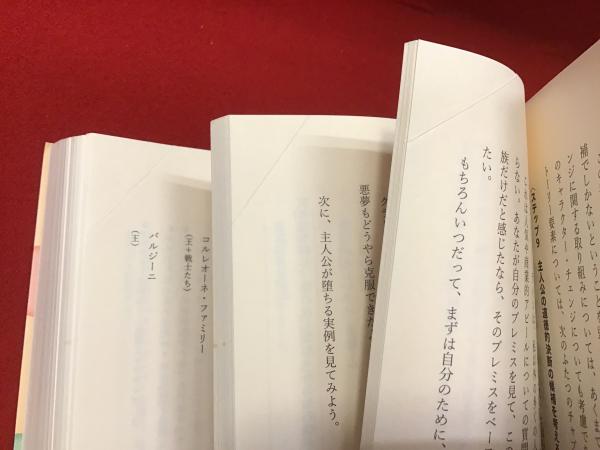 補でしかないということを
ンジに関する取り組みについては、あくまで
のキャラクター・チェンジについても考慮で
トーリー要素については、次のふたつのチャプ
〈ステップ9 主人公の道徳的決断の候補を考える
商業的アピールについての質問
らない。あなたが自分のプレミスを見て、この
族だけだと感じたなら、そのプレミスをベース
たい。
もちろんいつだって、まずは自分のために、
悪夢もどうやら克服できた
次に、主人公が堕ちる実例を見てみよう。
コルレオーネ・ファミリー
（王＋戦士たち）
バルジーニ
（王）